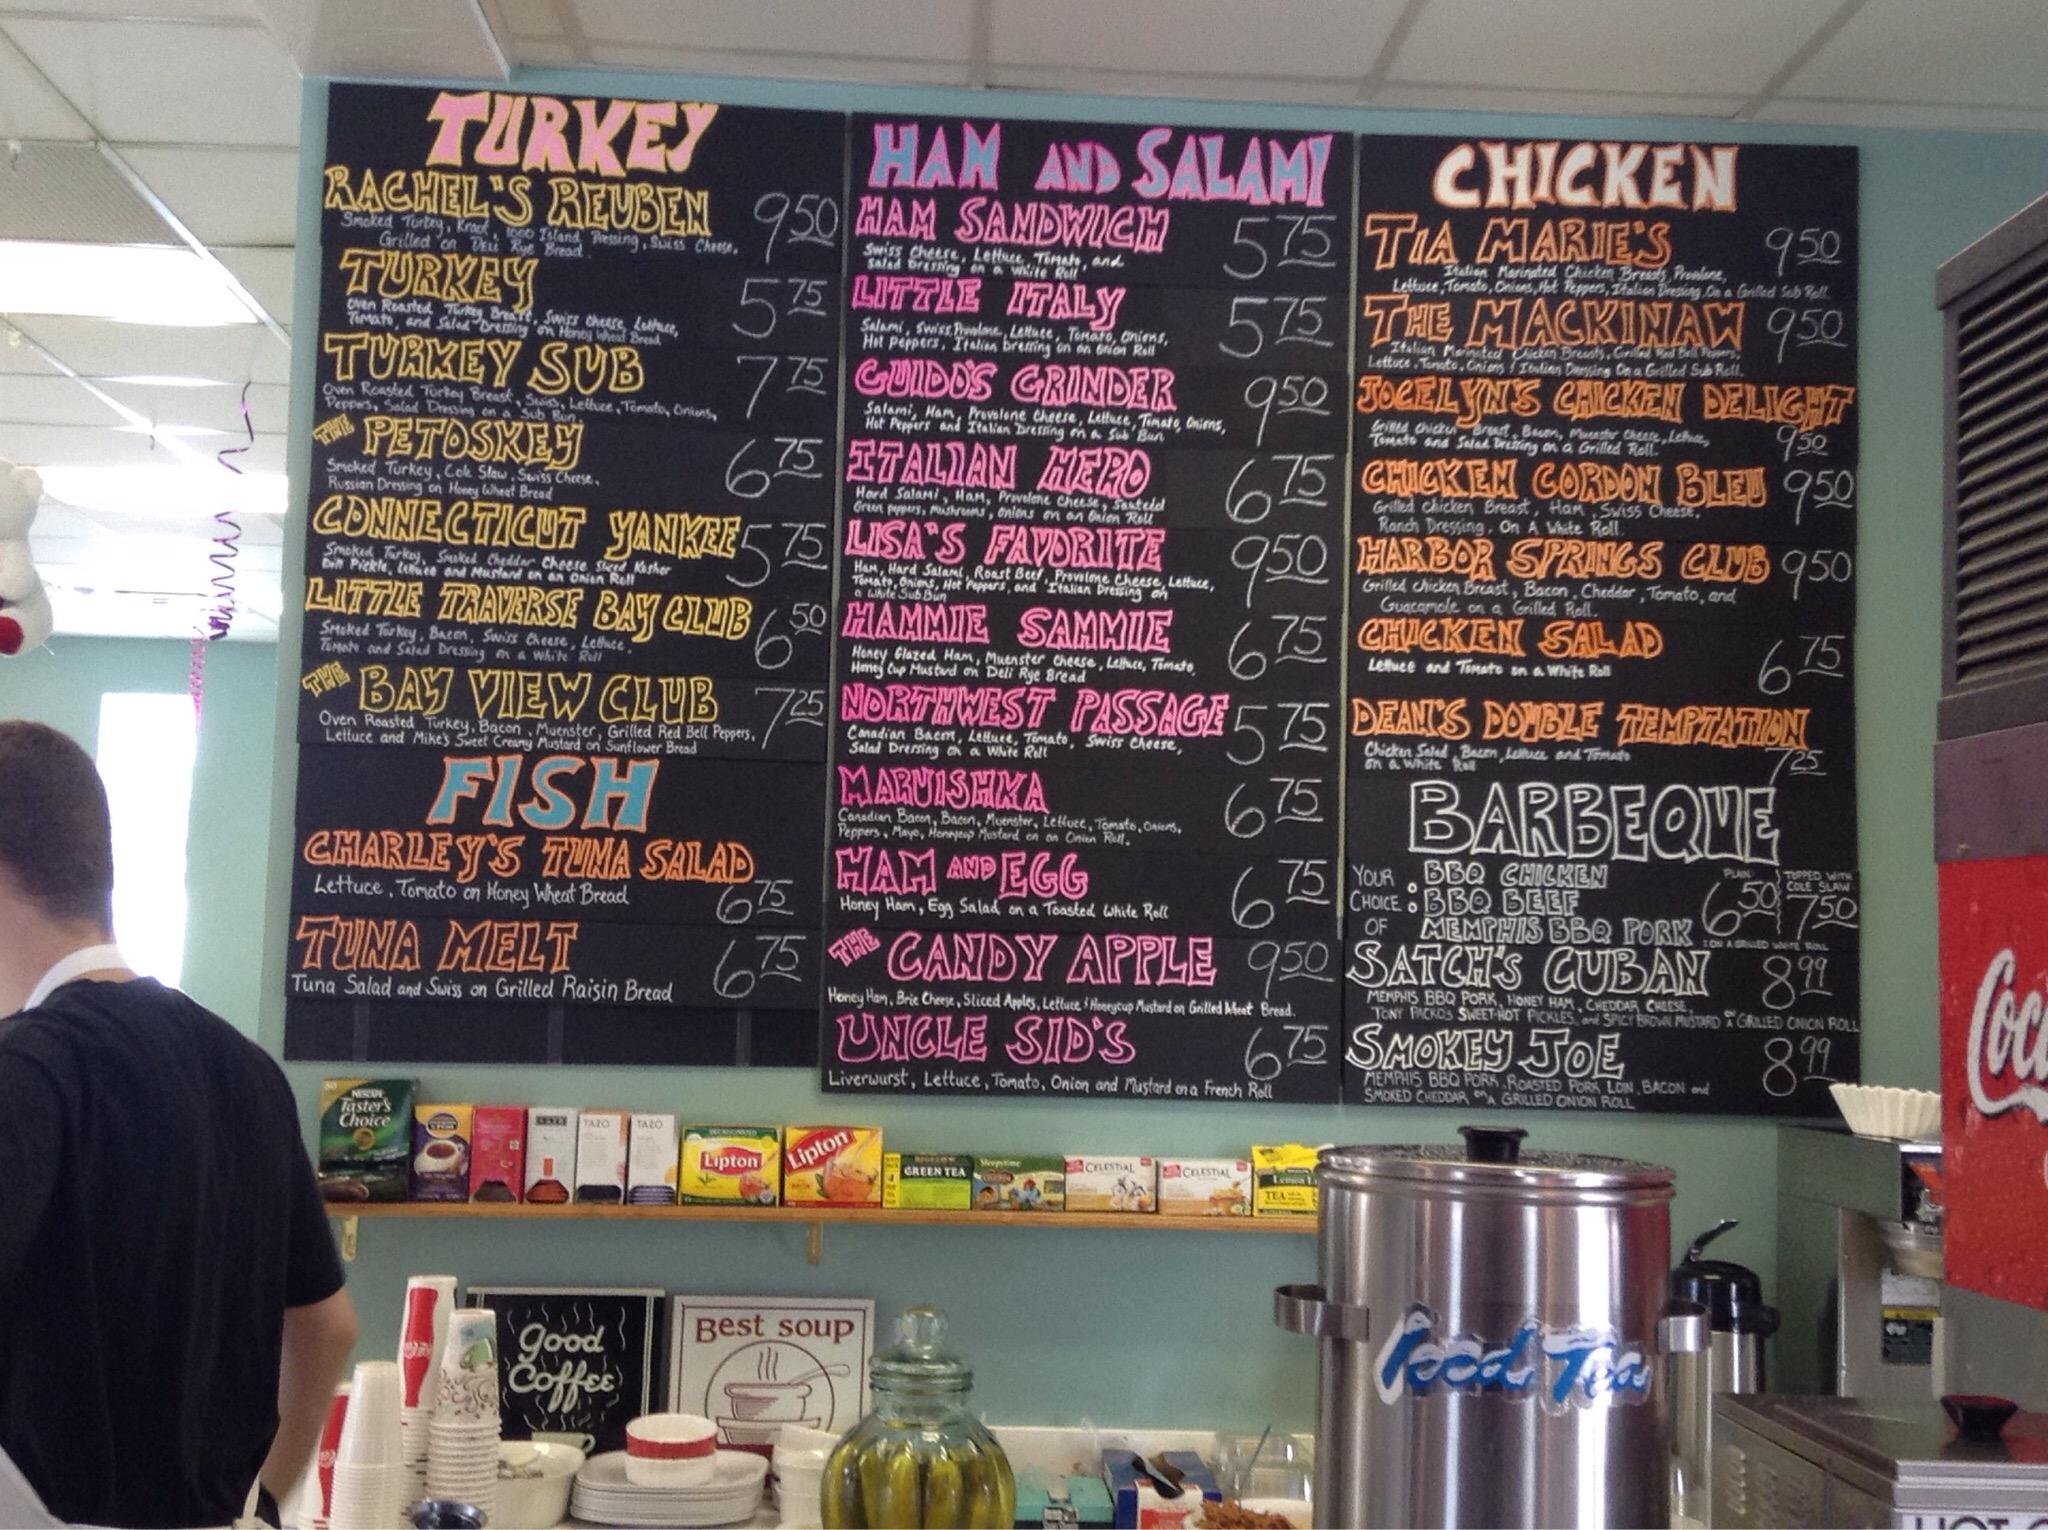 TURKEY
RACHEL'S REUBEN 9.50
Smoked Turkey, Kraut, 1000 Island Dressing, Swiss Cheese,
Grilled on Deli Rye Bread.
TURKEY 5.75
Oven Roasted Turkey Breast, Swiss Cheese, Lettuce,
Tomato, and Salad Dressing on Honey Wheat Bread
TURKEY SUB 7.75
Oven Roasted Turkey Breast, Swiss, Lettuce, Tomato, Onions,
Peppers, Salad Dressing on a Sub Bun.
THE PETOSKEY 6.75
Smoked Turkey, Cole Slaw, Swiss Cheese,
Russian Dressing on Honey Wheat Bread
CONNECTICUT YANKEE 5.75
Smoked Turkey, Smoked Cheddar Cheese Sliced Kosher
Dill Pickle, Lettuce and Mustard on an Onion Roll
LITTLE TRAVERSE BAY CLUB 6.50
Smoked Turkey, Bacon, Swiss Cheese, Lettuce,
Tomato and Salad Dressing on a White Roll
THE BAY VIEW CLUB 7.25
Oven Roasted Turkey, Bacon, Muenster, Grilled Red Bell Peppers,
Lettuce and Mike's Sweet Creamy Mustard on Sunflower Bread
FISH
CHARLEY'S TUNA SALAD
Lettuce, Tomato on Honey Wheat Bread 6.75
TUNA MELT 6.75
Tuna Salad and Swiss on Grilled Raisin Bread
HAM AND SALAMI
HAM SANDWICH 5.75
Swiss Cheese, Lettuce, Tomato, and
Salad Dressing on a White Roll
LITTLE ITALY 5.75
Salami, Swiss, Provolone, Lettuce, Tomato, Onions,
Hot Peppers, Italian Dressing on an Onion Roll
GUIDO'S GRINDER 9.50
Salami, Ham, Provolone Cheese, Lettuce, Tomato, Onions,
Hot Peppers and Italian Dressing on a Sub Bun
ITALIAN HERO 6.75
Hard Salami, Ham, Provolone Cheese, Sauteed
Green peppers, Mushrooms, Onions on an Onion Roll
LISA'S FAVORITE 9.50
Ham, Hard Salami, Roast Beef, Provolone Cheese, Lettuce,
Tomato, Onions, Hot Peppers, and Italian Dressing on
a White Sub Bun
HAMMIE SAMMIE 6.75
Honey Glazed Ham, Muenster Cheese, Lettuce, Tomato,
Honey Cup Mustard on Deli Rye Bread
NORTHWEST PASSAGE 5.75
Canadian Bacon, Lettuce, Tomato, Swiss Cheese,
Salad Dressing on a White Roll
MARUISHKA 6.75
Canadian Bacon, Bacon, Muenster, Lettuce, Tomato, Onions,
Peppers, Mayo, Honeycup Mustard on an Onion Roll.
HAM AND EGG 6.75
Honey Ham, Egg Salad on a Toasted White Roll
THE CANDY APPLE 9.50
Honey Ham, Brie Cheese, Sliced Apples, Lettuce & Honeycup Mustard on Grilled Wheat Bread.
UNCLE SID'S 6.75
Liverwurst, Lettuce, Tomato, Onion and Mustard on a French Roll
CHICKEN
TIA MARIE'S 9.50
Italian Marinated Chicken Breasts, Provolone,
Lettuce, Tomato, Onions, Hot Peppers, Italian Dressing On a Grilled Sub Roll
THE MACKINAW 9.50
Italian Marinated Chicken Breasts, Grilled Red Bell Peppers,
Lettuce, Tomato, Onions / Italian Dressing On a Grilled Sub Roll.
JOCELYN'S CHICKEN DELIGHT
Grilled Chicken Breast, Bacon, Muenster Cheese, Lettuce,
Tomato and Salad Dressing on a Grilled Roll. 9.50
CHICKEN CORDON BLEU 9.50
Grilled Chicken Breast, Ham, Swiss Cheese,
Ranch Dressing, On A White Roll.
HARBOR SPRINGS CLUB 9.50
Grilled Chicken Breast, Bacon, Cheddar, Tomato, and
Guacamole on a Grilled Roll.
CHICKEN SALAD 6.75
Lettuce and Tomato on a White Roll
DEAN'S DOUBLE TEMPTATION
Chicken Salad, Bacon, Lettuce and Tomato
on a White Roll 7.25
BARBEQUE
YOUR CHOICE OF:
BBQ CHICKEN
BBQ BEEF
MEMPHIS BBQ PORK
PLAIN 6.50
TOPPED WITH COLE SLAW 7.50
ON A GRILLED WHITE ROLL
SATCH'S CUBAN 8.99
MEMPHIS BBQ PORK, HONEY HAM, CHEDDAR CHEESE,
TONY PACKO'S SWEET-HOT PICKLES, and SPICY BROWN MUSTARD on A GRILLED ONION ROLL
SMOKEY JOE 8.99
MEMPHIS BBQ PORK, ROASTED PORK LOIN, BACON and
SMOKED CHEDDAR on A GRILLED ONION ROLL
NESCAFE
Taster's Choice
TAZO
TAZO
TAZO
Lipton
Lipton
GREEN TEA
Sleepytime
CELESTIAL
CELESTIAL
Lemon
TEA
Good
Coffee
Best soup
Iced Tea
Coc
HOT